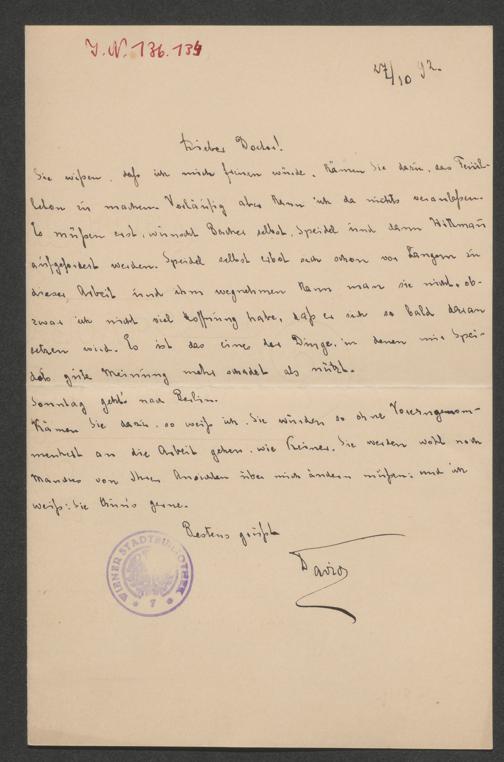 J. N. 136.139
27/10 92.
Lieber Doctor!
Sie wißen, daß ich mich freuen würde, kämen Sie dazu, das Feuil-
leton zu machen. Vorläufig aber kann ich da nichts veranlaßen.
Es müßen erst, wünscht Bacher selbst, Speidel und dann Wittmann
aufgefordert werden. Speidel selbst erbot sich schon vor Langem zu
dieser Arbeit und ihm wegnehmen kann man sie nicht, ob-
zwar ich nicht viel Hoffnung habe, daß er sich so bald daran
setzen wird. Es ist das eines der Dinge, in denen mir Spei-
dels gute Meinung mehr schadet als nützt.
Sonntag geht nach Berlin.
Kämen Sie dazu, so weiß ich, Sie würden so ohne Voreingenom-
menheit an die Arbeit gehen, wie Keiner. Sie werden wohl noch
Manches von Ihren Ansichten über mich ändern müßen; und ich
weiß: Sie thun's gerne.
Bestens grüßt
David
WIENER STADTBIBLIOTHEK
* 7 *